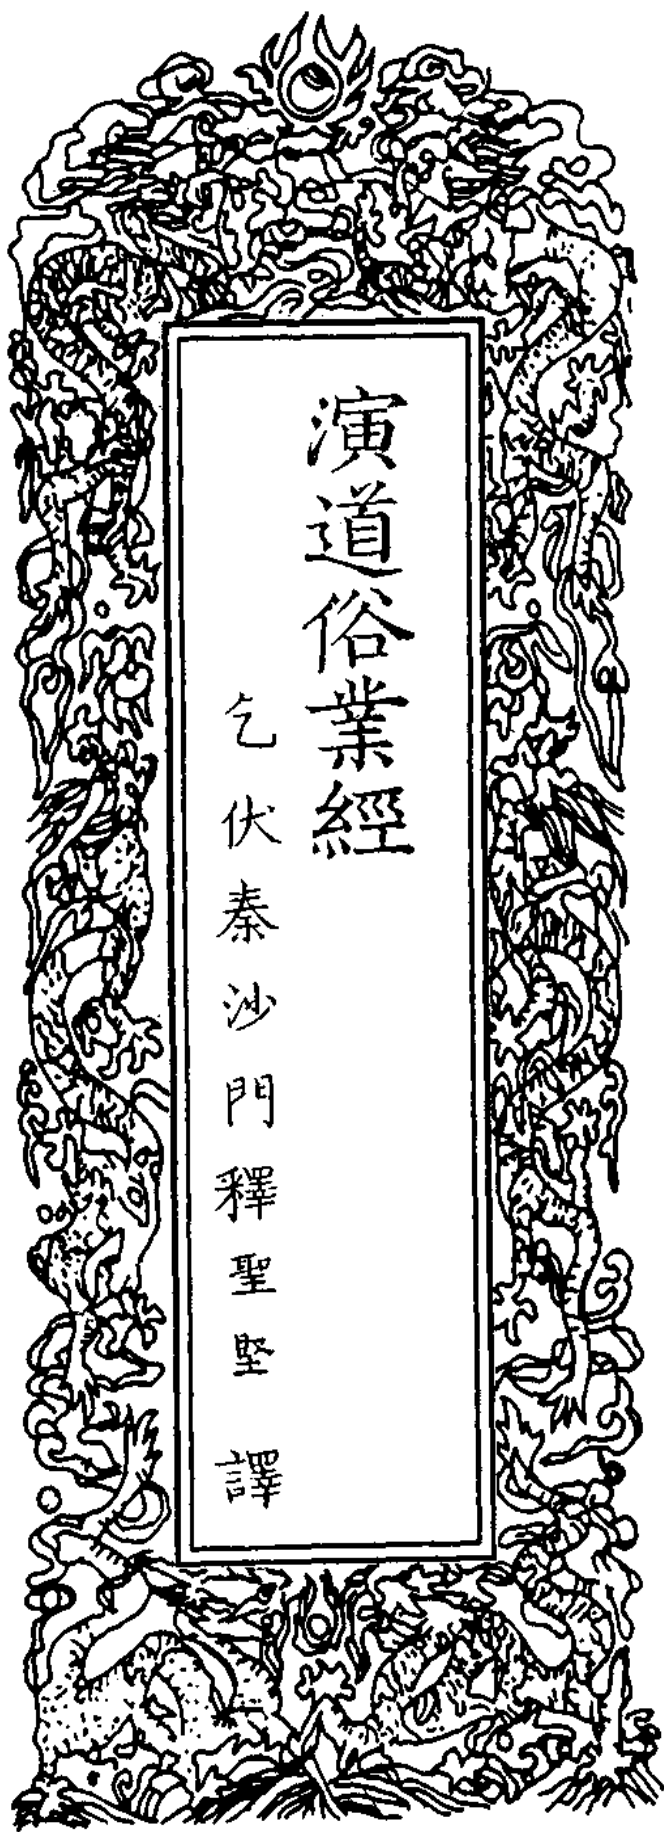 演道俗業經
乞伏秦沙門釋聖堅 譯